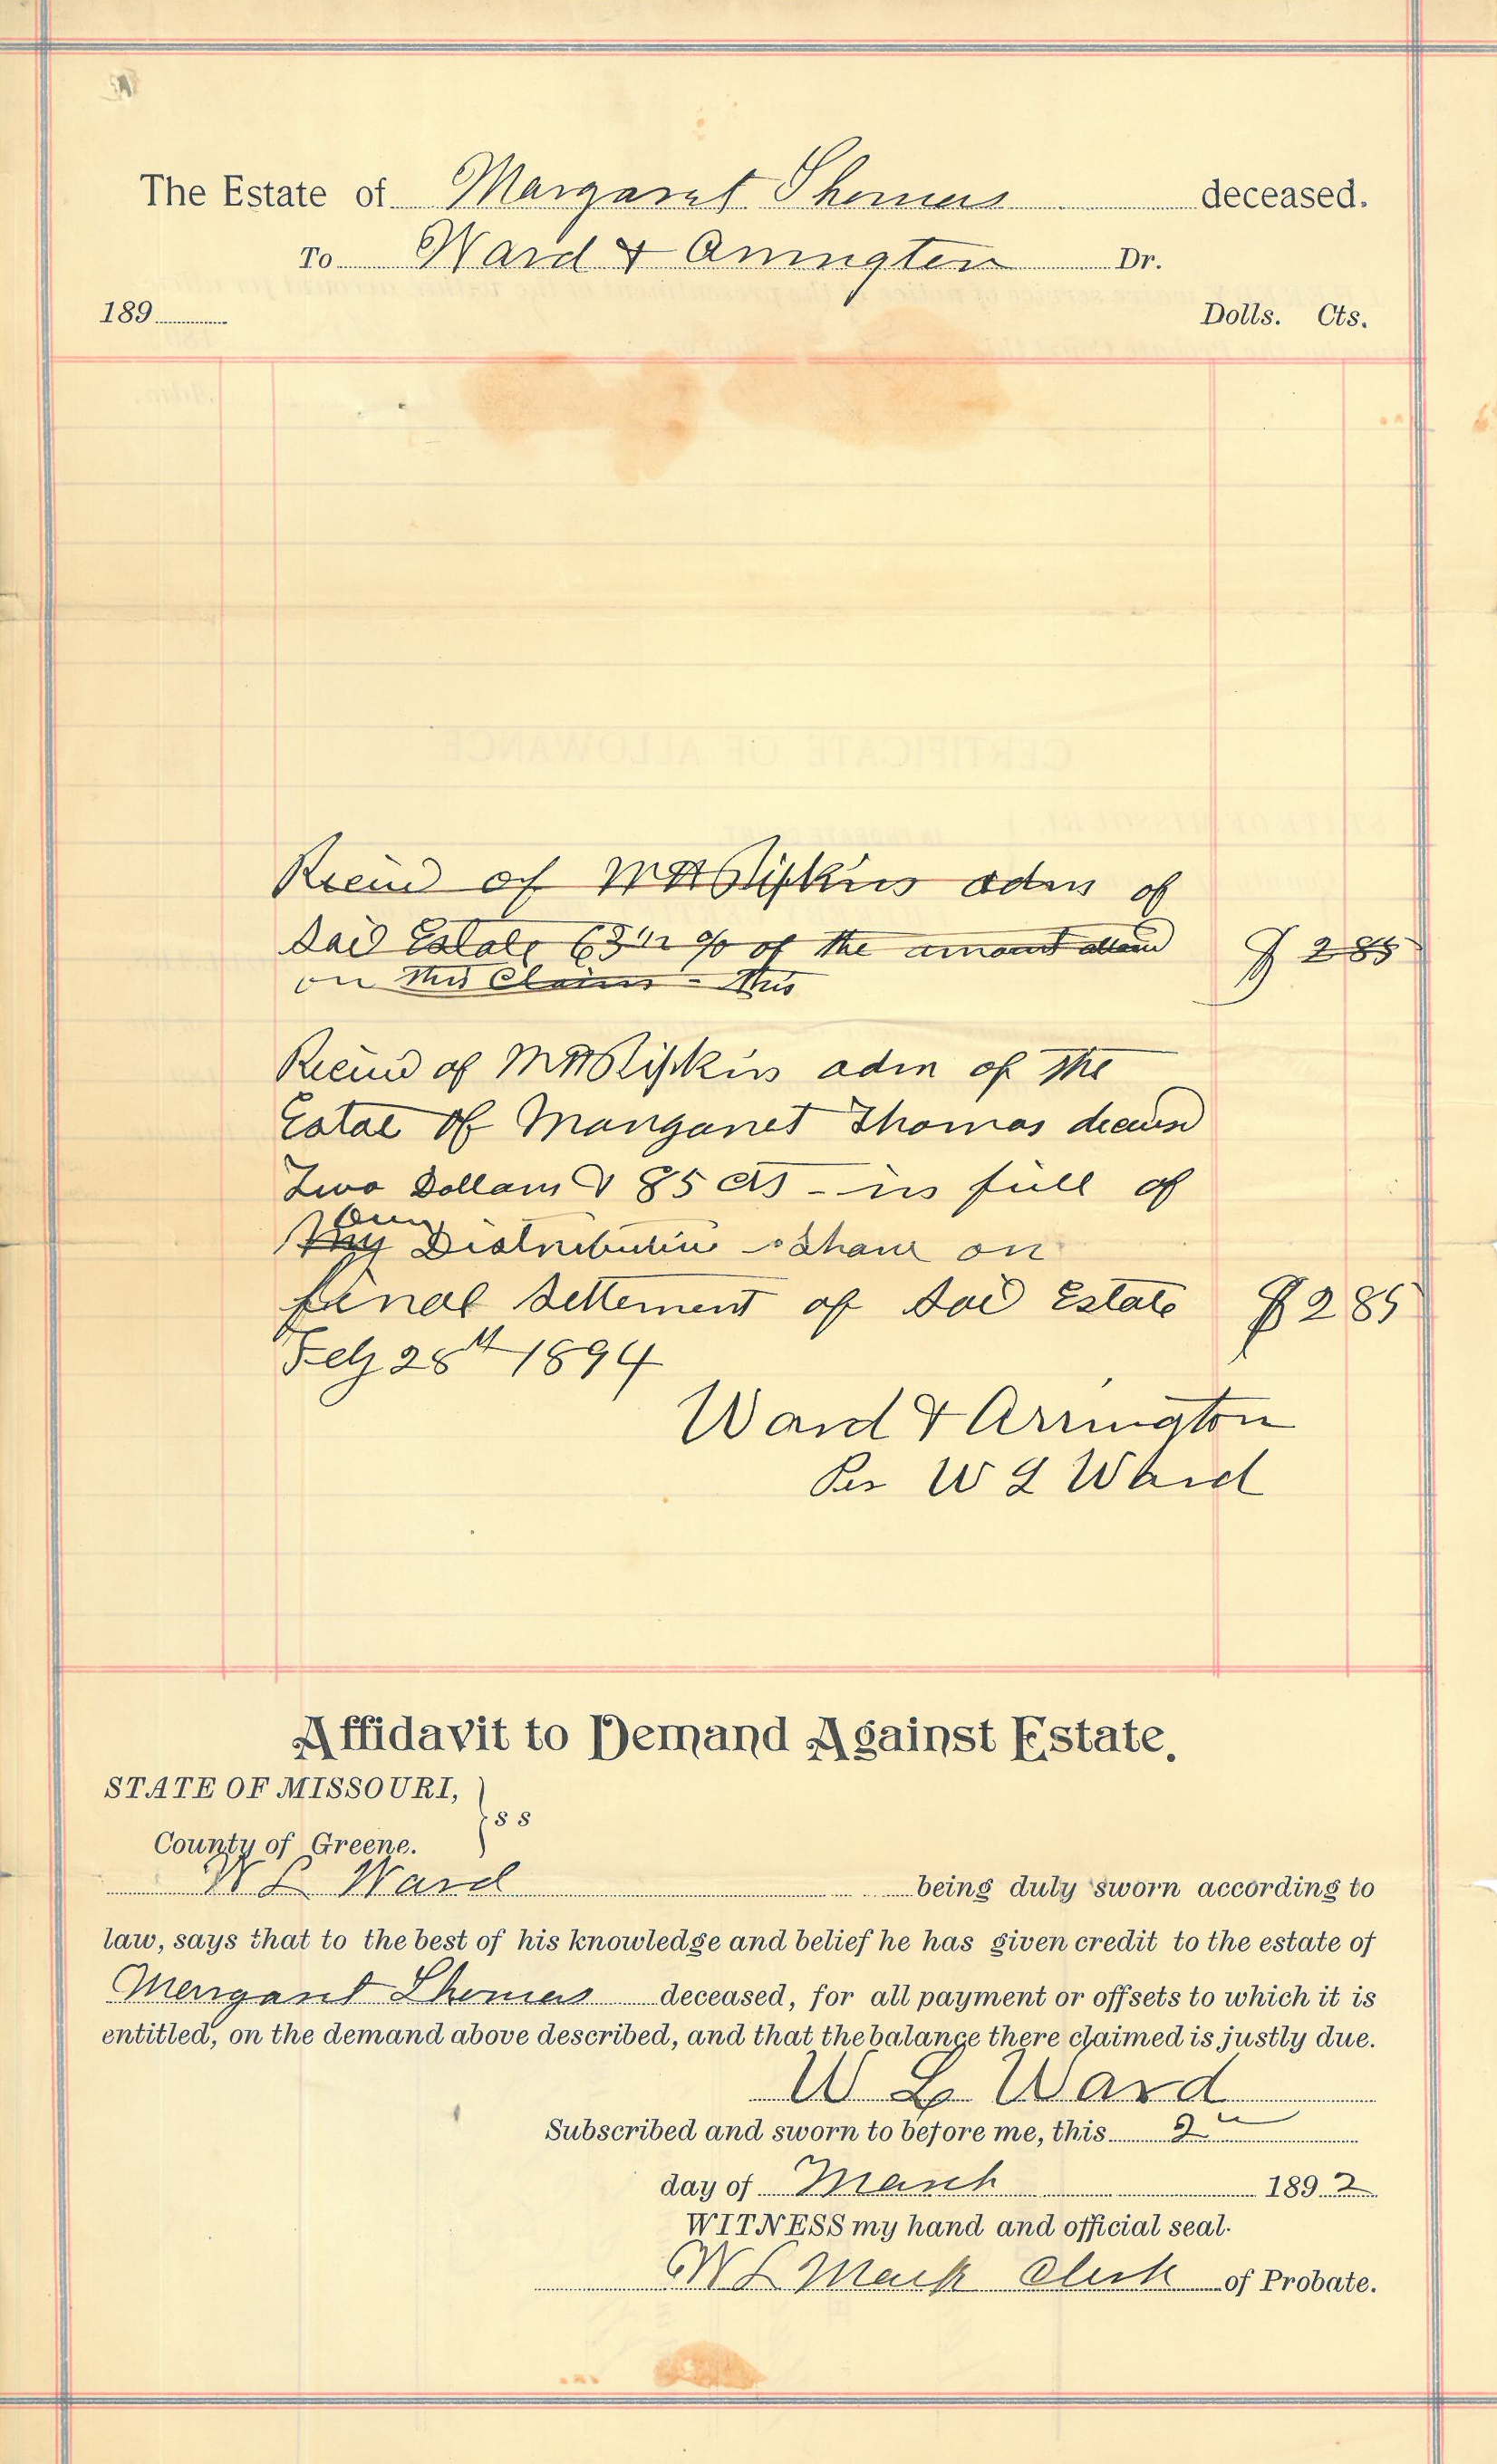 The Estate of Margaret Thomas deceased.
To Ward & Arrington Dr.
189 Dolls. Cts.
Recd of W H Pipkins adm of
said Estate 63 1/2 % of the amount allowed
on this Claim - this $ 2 85
Recd of W H Pipkins adm of the
Estate of Margaret Thomas deceased
Two Dollars & 85 cts - in full of
our
my Distributive share on
final settlement of said Estate $ 2 85
Feby 28th 1894
Ward & Arrington
Per W L Ward
Affidavit to Demand Against Estate.
STATE OF MISSOURI,
} s s
County of Greene.
W L Ward being duly sworn according to
law, says that to the best of his knowledge and belief he has given credit to the estate of
Margaret Thomas deceased, for all payment or offsets to which it is
entitled, on the demand above described, and that the balance there claimed is justly due.
W L Ward
Subscribed and sworn to before me, this 2"
day of March 1892
WITNESS my hand and official seal.
W L Mack Clerk of Probate.